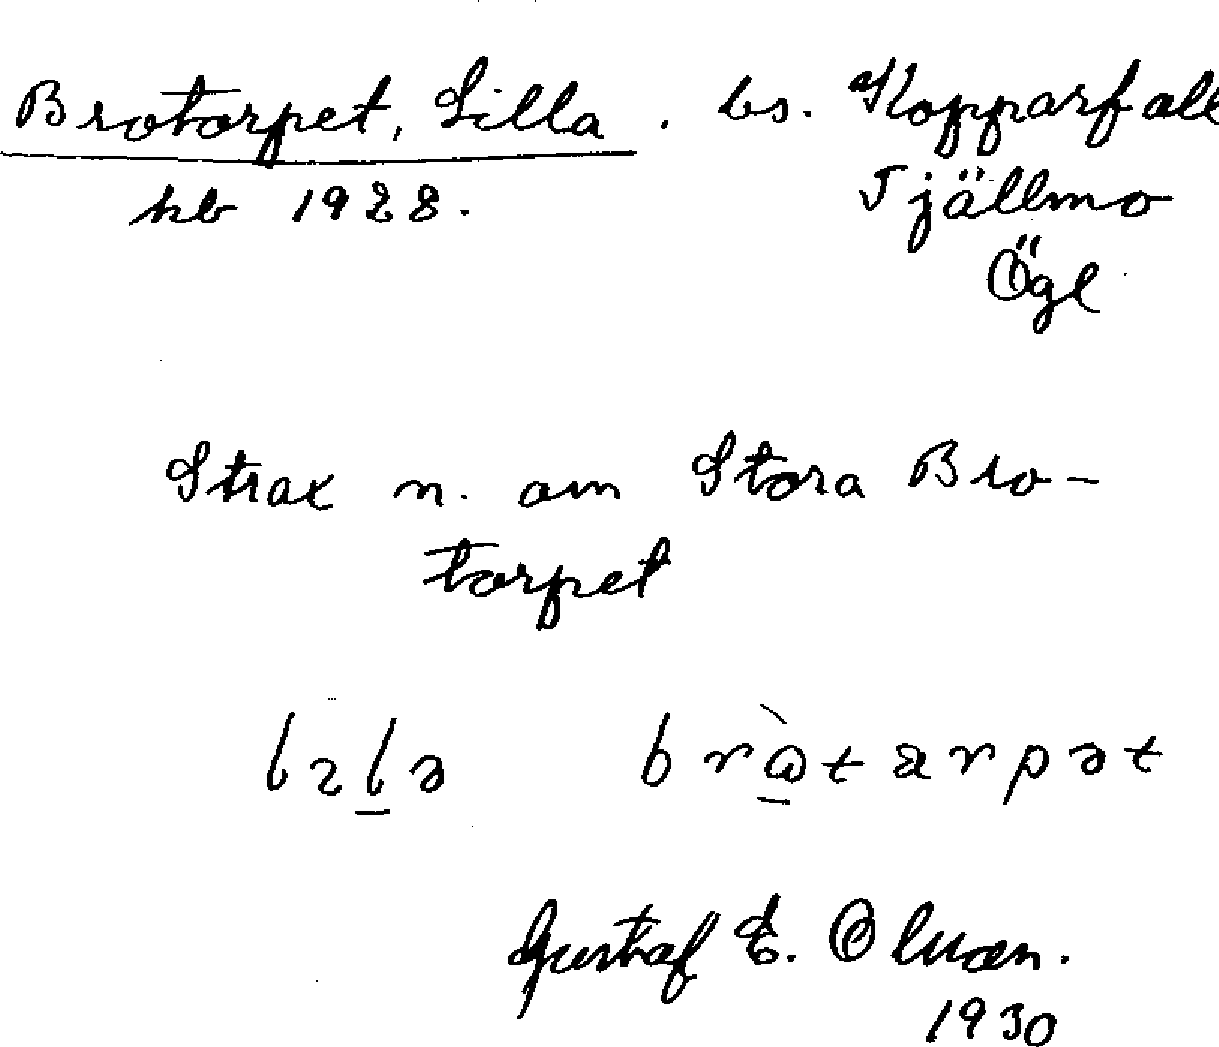 Brotorpet, Lilla. bs. Kopparfall
hb 1928. Tjällmo
Ögl
Strax n. om Stora Bro-
torpet
Gustaf E. Olson.
1930